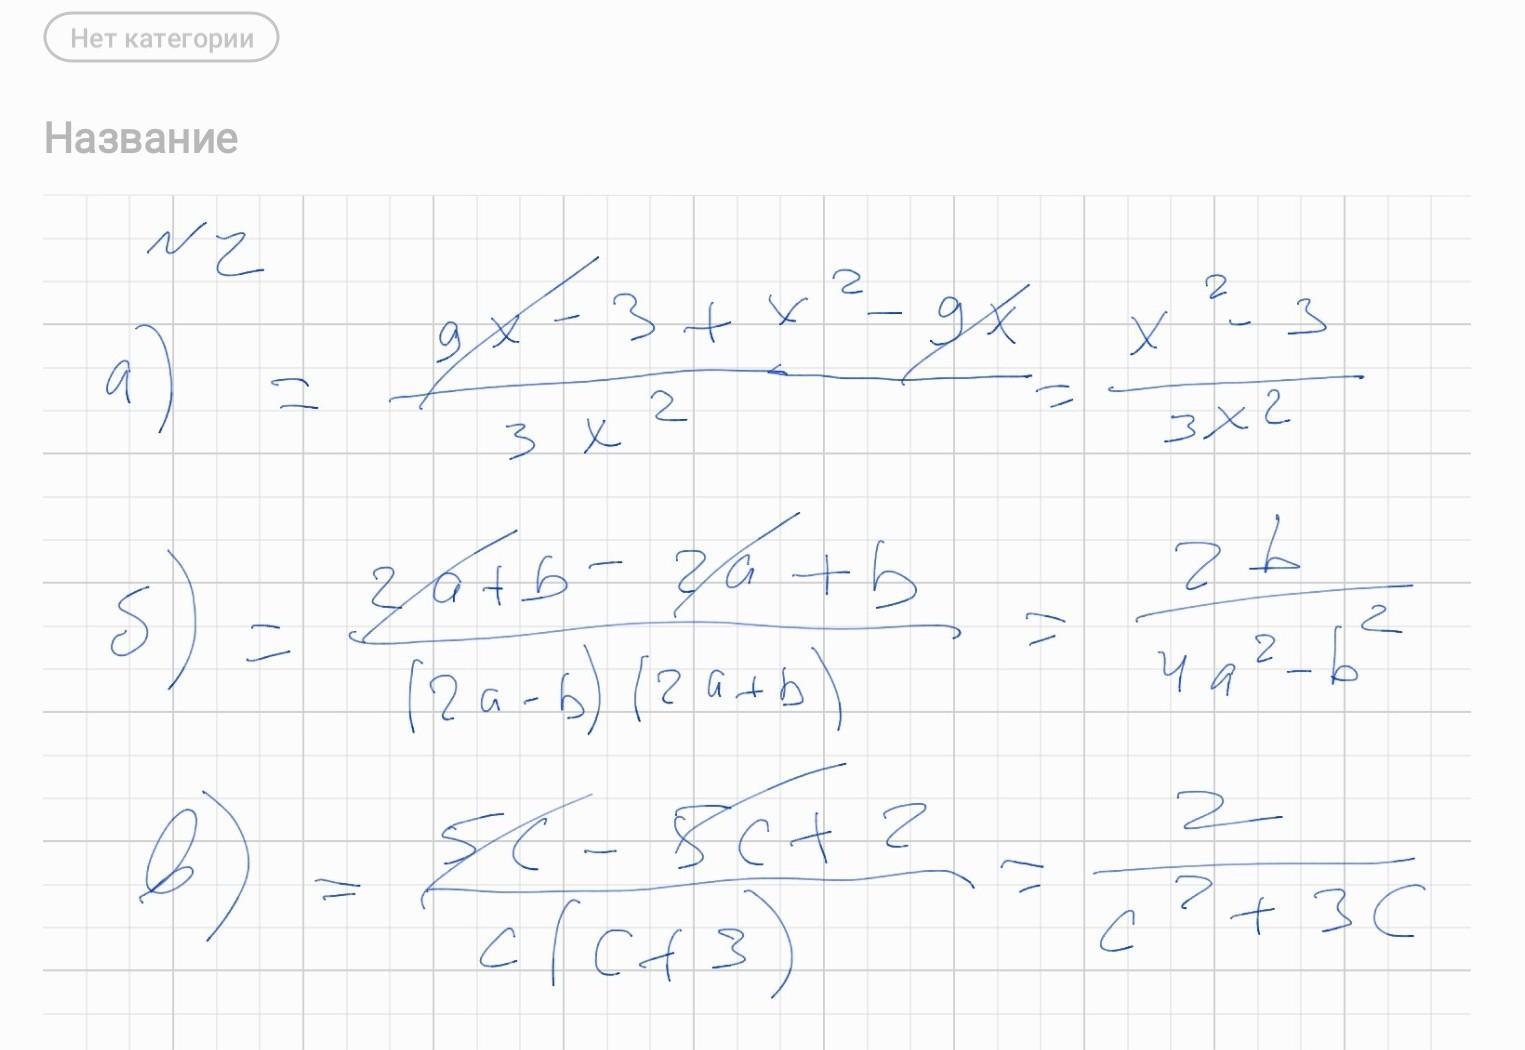 Нет категории
Название
N2
а) = (9x - 3 + x² - 9x)/(3x²) = (x² - 3)/(3x²)
б) = (2a + b - 2a + b)/((2a - b)(2a + b)) = 2b/(4a² - b²)
в) = (5c - 5c + 2)/(c(c + 3)) = 2/(c² + 3c)